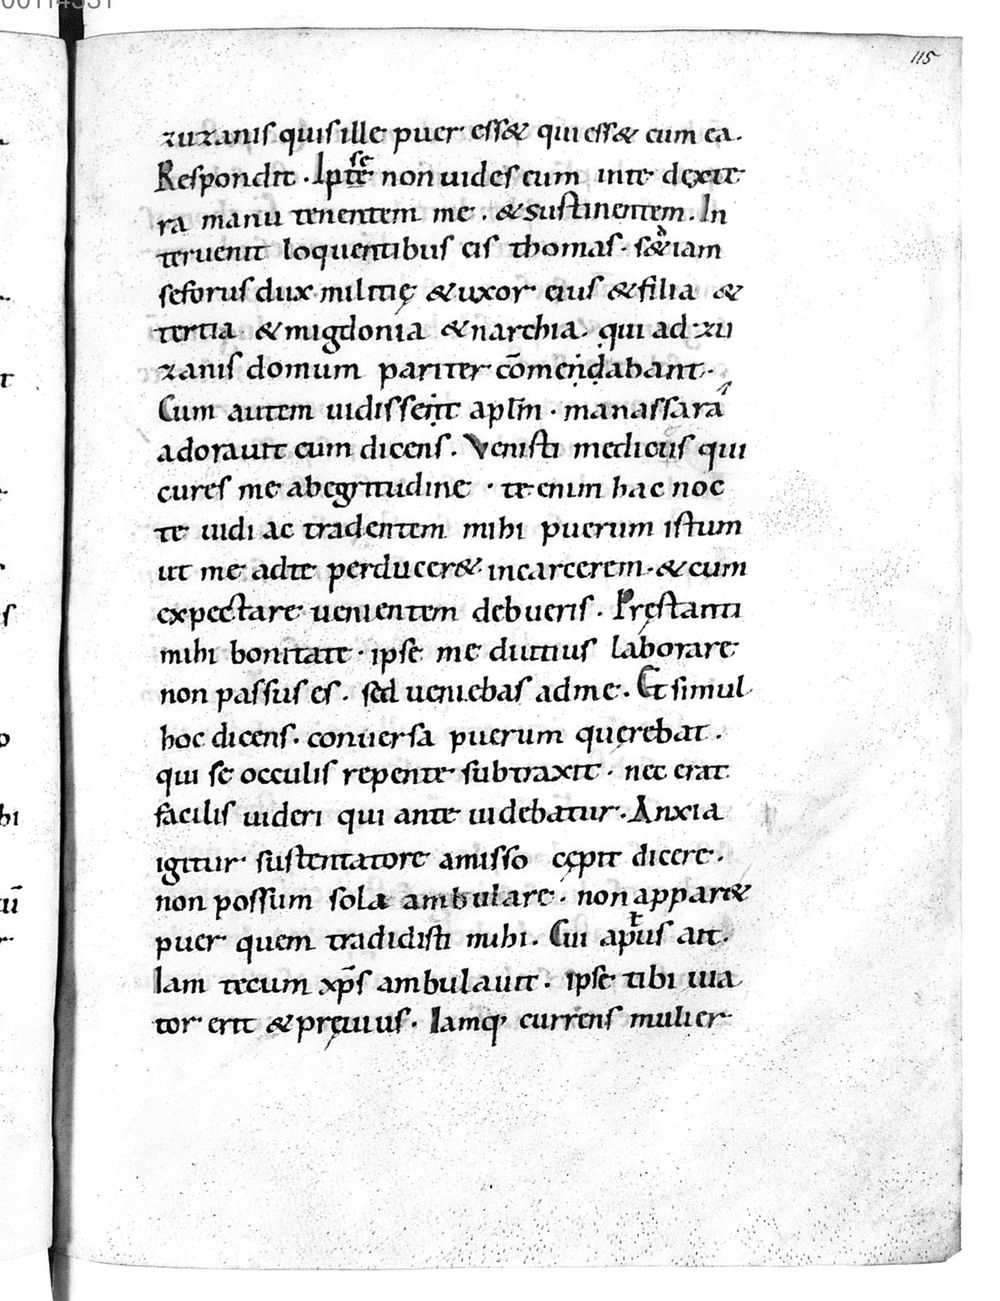 115
zuzanis quis ille puer ess& qui ess& cum ea.
Respondit. Ipse te non uides eum inte dexte
ra manu tenentem me. & sustinentem. In
teruenit loquentibus eis thomas. s& iam
seforus dux militię & uxor eius & filia &
tertia & migdonia & narchia. qui ad zu
zanis domum pariter cōmendabant.
Cum autem uidissent apłm. manassara
adorauit eum dicens. Venisti medicus qui
cures me abegritudine. te enim hac noc
te uidi ac tradentem mihi puerum istum
ut me adte perducer& incarcerem. & cum
expectare uenientem debueris. Pręstanti
mihi bonitate. ipse me diutius laborare
non passus es. sed ueniebas adme. Et simul
hoc dicens. conuersa puerum quęrebat.
qui se occulis repente subtraxit. nec erat
facilis uideri qui ante uidebatur. Anxia
igitur sustentatore amisso cępit dicere.
non possum sola ambulare. non appar&
puer quem tradidisti mihi. Cui aptus ait.
Iam tecum xp̄s ambulauit. ipse tibi uia
tor erit & pręuius. Iamq; currens mulier